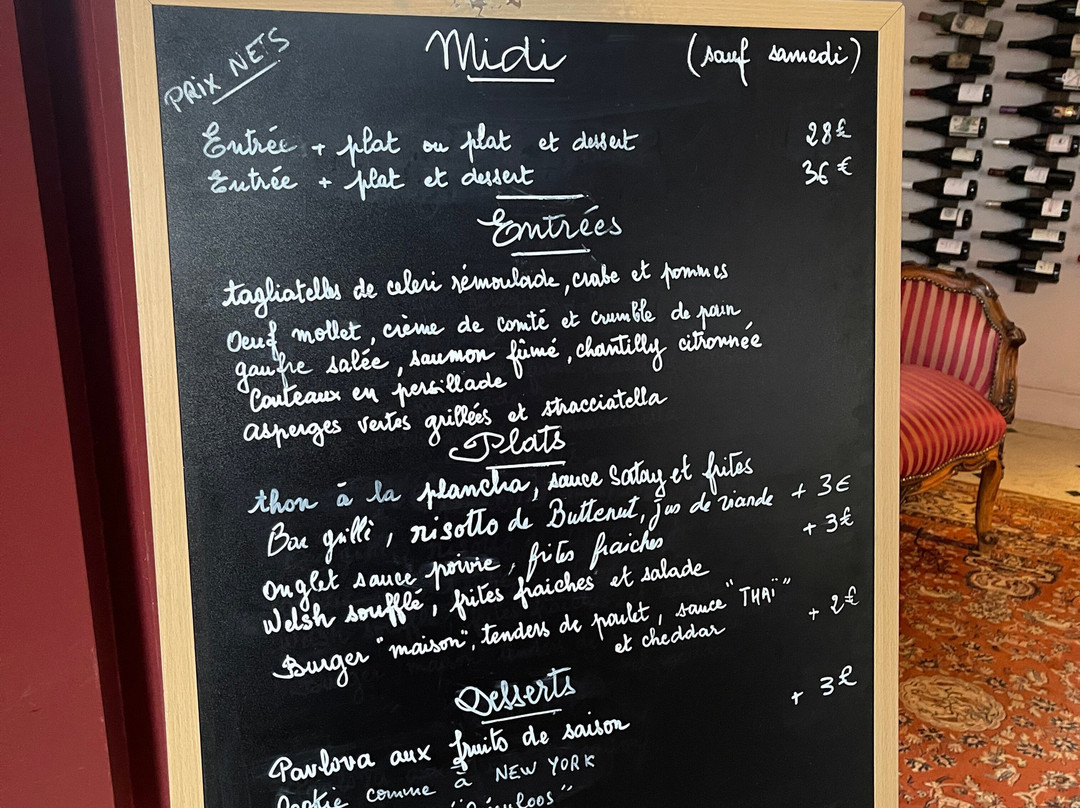 PRIX NETS
Midi (sauf samedi)
Entrée + plat ou plat et dessert 28€
Entrée + plat et dessert 36€
Entrées
tagliatelles de celeri rémoulade, crabe et pommes
Oeuf mollet, crème de comté et crumble de pain
gaufre salée, saumon fûmé, chantilly citronnée
Couteaux en persillade
asperges vertes grillées et stracciatella
Plats
thon à la plancha, sauce Satay et frites
Bar grillé, risotto de Butternut, jus de viande + 3€
Onglet sauce poivre, frites fraiches + 3€
Welsh soufflé, frites fraiches et salade
Burger "maison", tenders de poulet, sauce "THAÏ" + 2€
et cheddar
Desserts + 3€
Pavlova aux fruits de saison
Cookie comme à NEW YORK